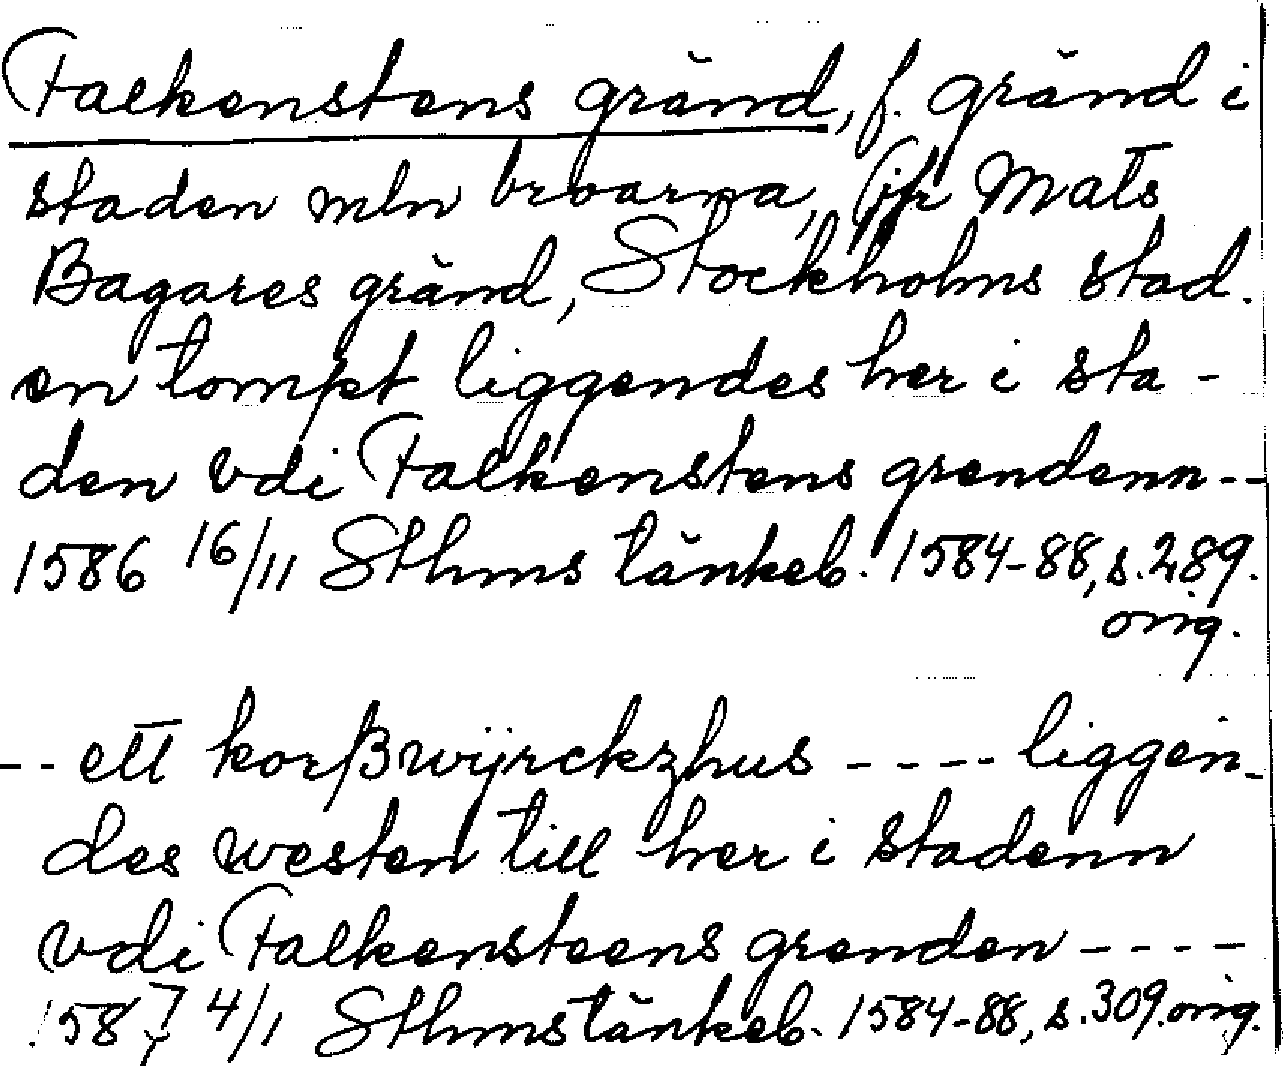 Falkenstens gränd, f. gränd i
staden mln broarna, (jfr Mats
Bagares gränd, Stockholms stad.
en tompt liggendes her i sta-
den vdi Falkenstens grendenn--
1586 16/11 Sthms tänkeb. 1584-88, s. 289.
orig.
-- ett korßwijrckzhus ---- liggen-
des westen till her i stadenn
vdi Falkensteens grenden ----
1587 4/1 Sthms tänkeb. 1584-88, s. 309. orig.